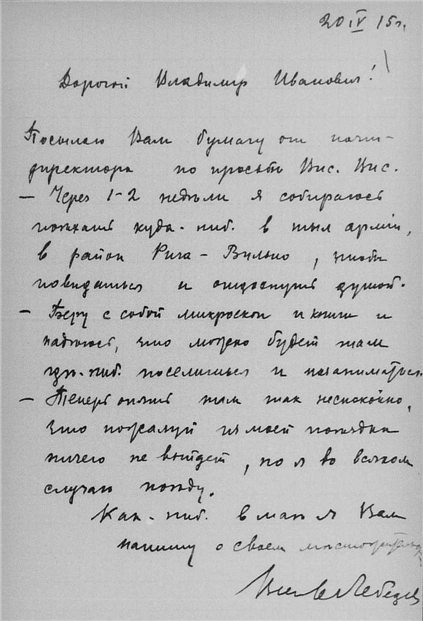 20 IV 15 г.
Дорогой Владимир Иванович!
Посылаю Вам бумагу от
директора по просьбе Вяс. Вяс.
— Через 1-2 недели я собираюсь
поехать куда-ниб. в тыл армии,
в район Рига – Вильно, чтобы
повидаться и отдохнуть душой.
— Беру с собой микроскоп и книги и
надеюсь, что можно будет там
где-ниб. поселиться и позаниматься.
— Теперь опять там так неспокойно,
что пожалуй из моей поездки
ничего не выйдет, но я во всяком
случае поеду.
Как-ниб. в мае я Вам
напишу о своем
Лебедев